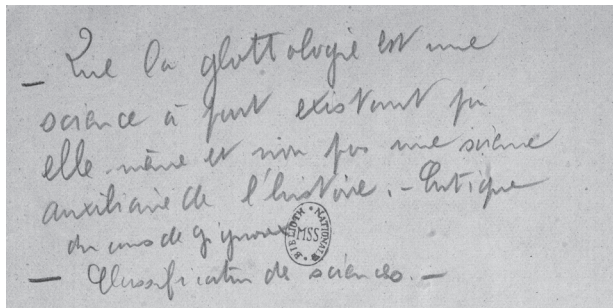 — Que la glottologie est une
science à part existant par
elle-même et non pas une science
auxiliaire de l'histoire. – Critique
du cours de
BIBLIOTH. NATIONALE MSS
— Classification de sciences. —